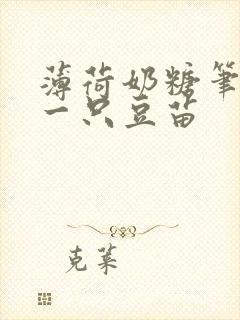 薄荷奶糖笔
一只豆苗
克莱